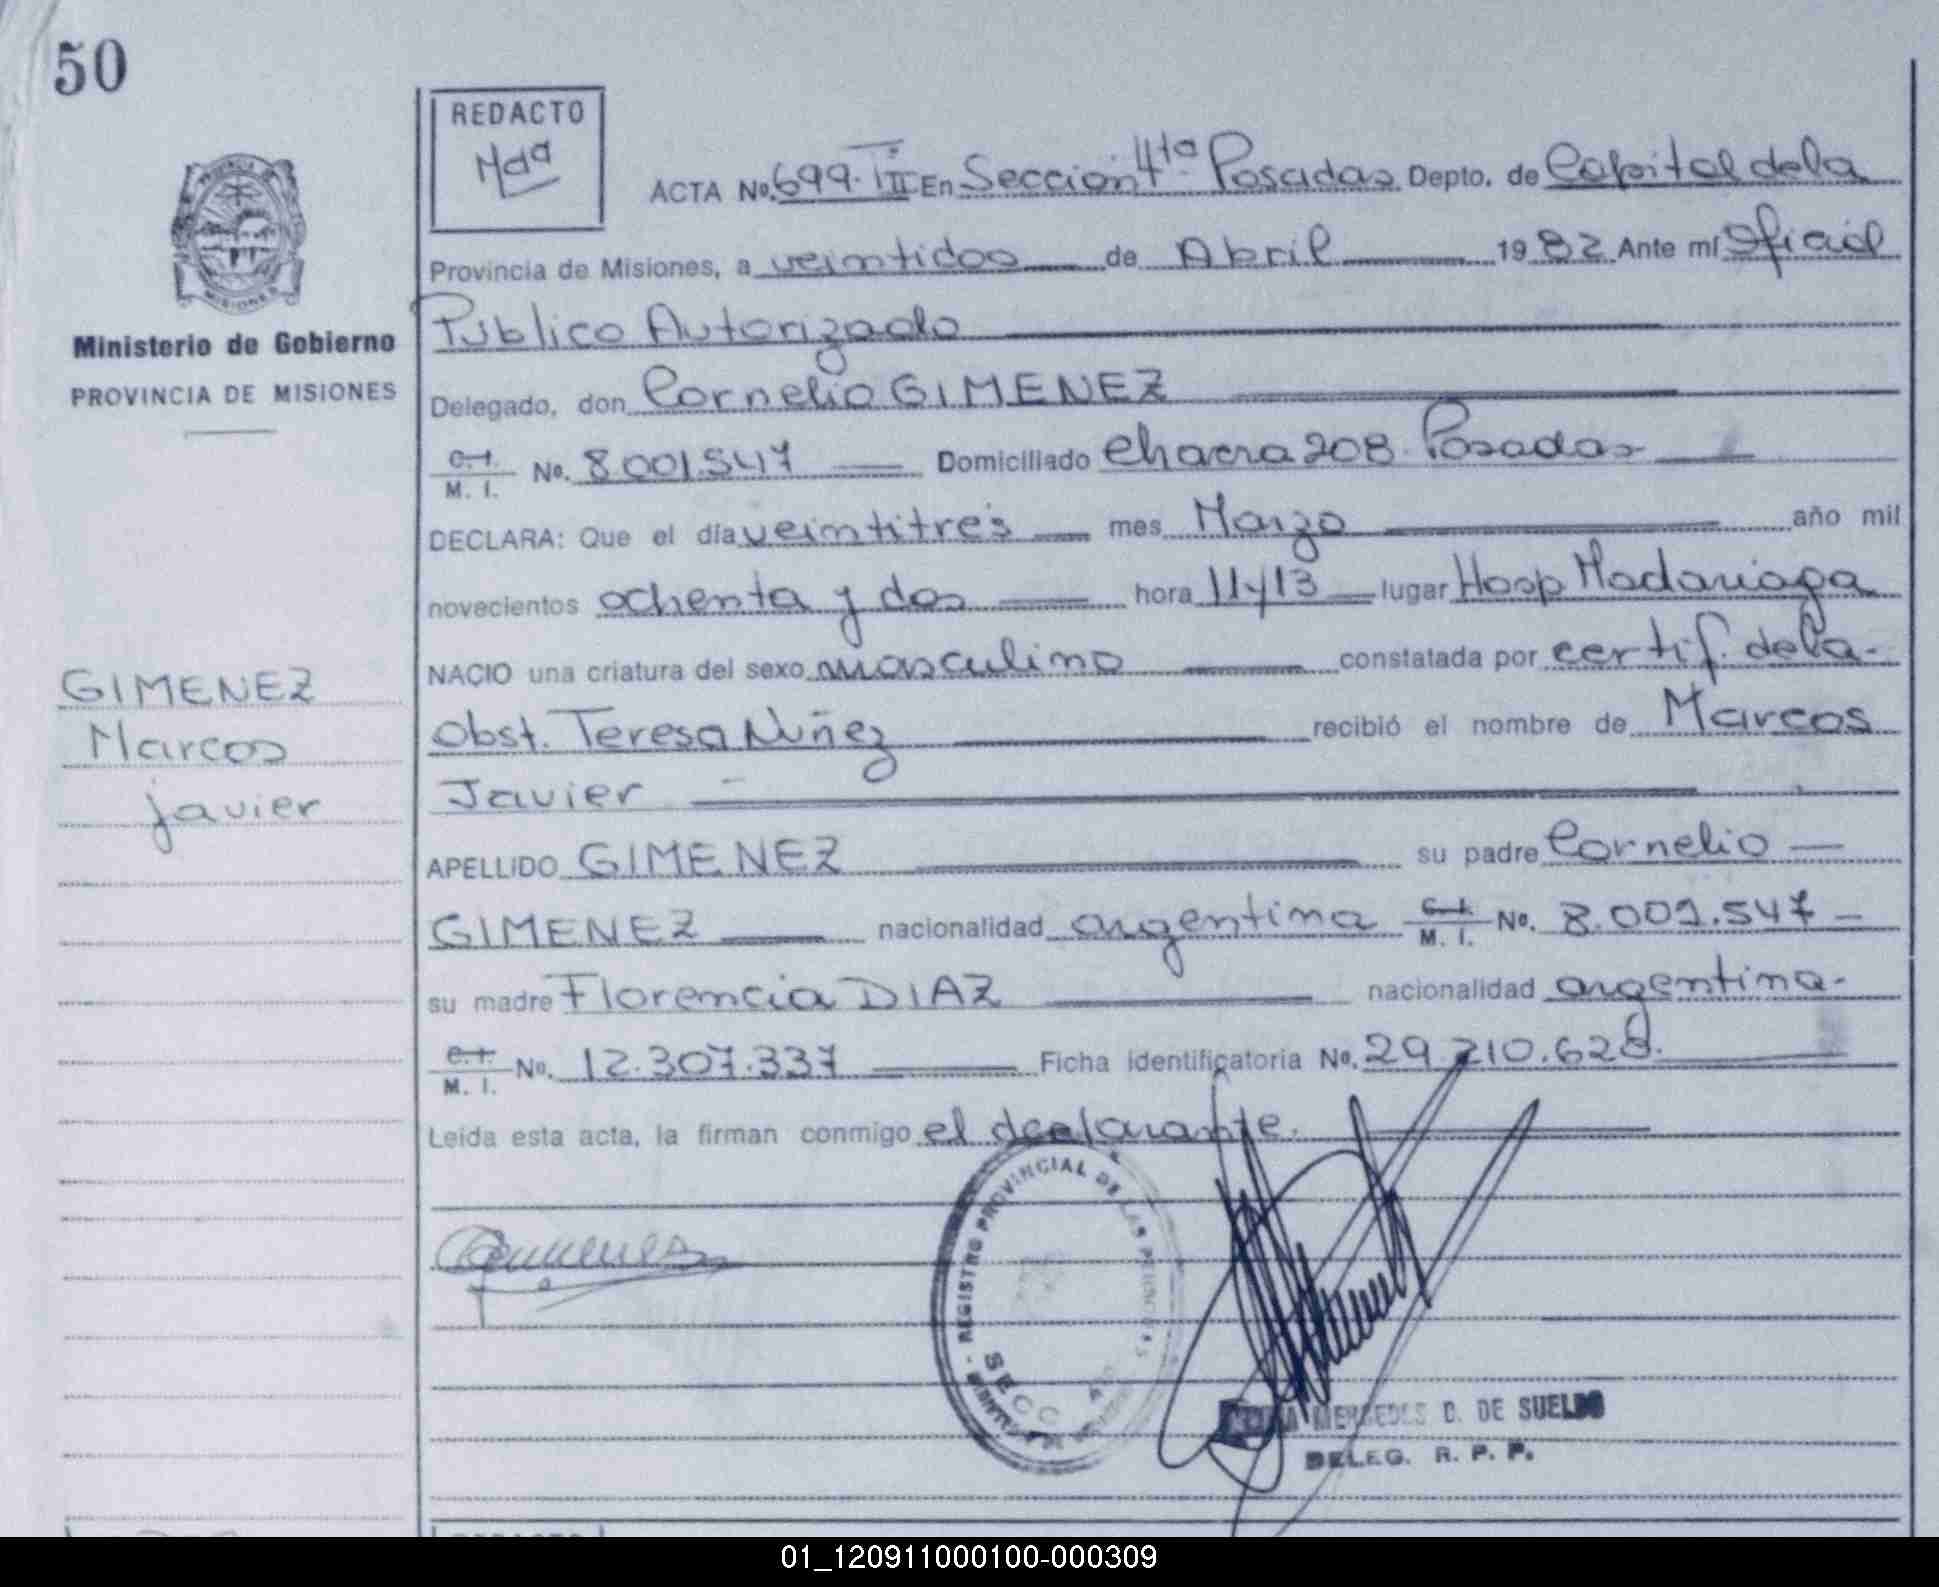 50
REDACTO
Mdd
PROVINCIA DE
MISIONES
Ministerio de Gobierno
PROVINCIA DE MISIONES
GIMENEZ
Marcos
javier
ACTA No. 699. TII En Sección 4ta Posadas Depto. de Capital de la
Provincia de Misiones, a veintidos de Abril 1982 Ante mí Oficial
Público Autorizado
Delegado, don Cornelio GIMENEZ
C.I. M. I. No. 8.001.547 Domiciliado Chacra 208. Posadas
DECLARA: Que el día veintitrés mes Marzo año mil
novecientos ochenta y dos hora 11y13 lugar Hosp Madariaga
NACIO una criatura del sexo masculino constatada por certif. de la
Obst. Teresa Núñez recibió el nombre de Marcos
Javier
APELLIDO GIMENEZ su padre Cornelio
GIMENEZ nacionalidad argentina C.I. M. I. No. 8.001.547
su madre Florencia DIAZ nacionalidad argentina
C.I. M. I. No. 12.307.337 Ficha identificatoria No. 29.210.628.
Leída esta acta, la firman conmigo el declarante.
REGISTRO PROVINCIAL DE LAS PERSONAS
SECC
MERCEDES D. DE SUELDO
DELEG. R. P. P.
01_120911000100-000309